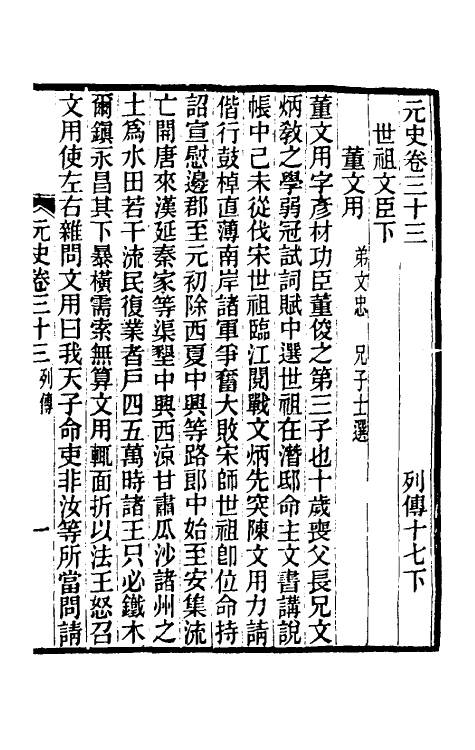 元史卷三十三 列傳十七下
世祖文臣下
董文用 弟文忠 兄子士選
董文用字彥材功臣董俊之第三子也十歲喪父長兄文
炳敎之學弱冠試詞賦中選世祖在潛邸命主文書講說
帳中己未從伐宋世祖臨江閱戰文炳先突陳文用力請
偕行鼓棹直薄南岸諸軍爭奮大敗宋師世祖卽位命持
詔宣慰邊郡至元初除西夏中興等路郞中始至安集流
亡開唐來漢延秦家等渠墾中興西涼甘肅瓜沙諸州之
土爲水田若干流民復業者戶四五萬時諸王只必鐵木
爾鎭永昌其下暴橫需索無算文用輒面折以法王怒召
文用使左右雜問文用曰我天子命吏非汝等所當問請
元史卷三十三 列傳 一